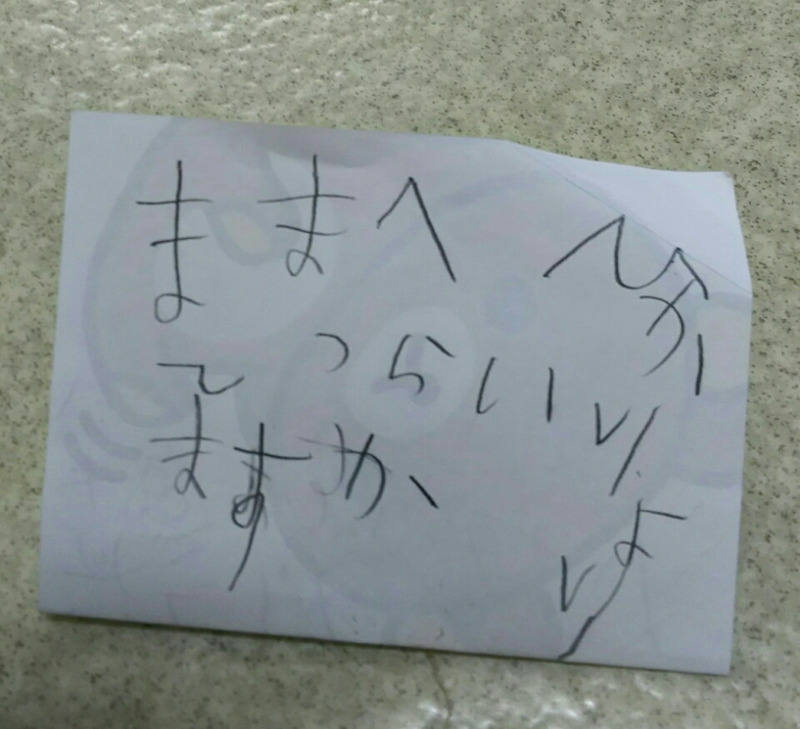 ままへ
てつらい
ますか
ひかりより